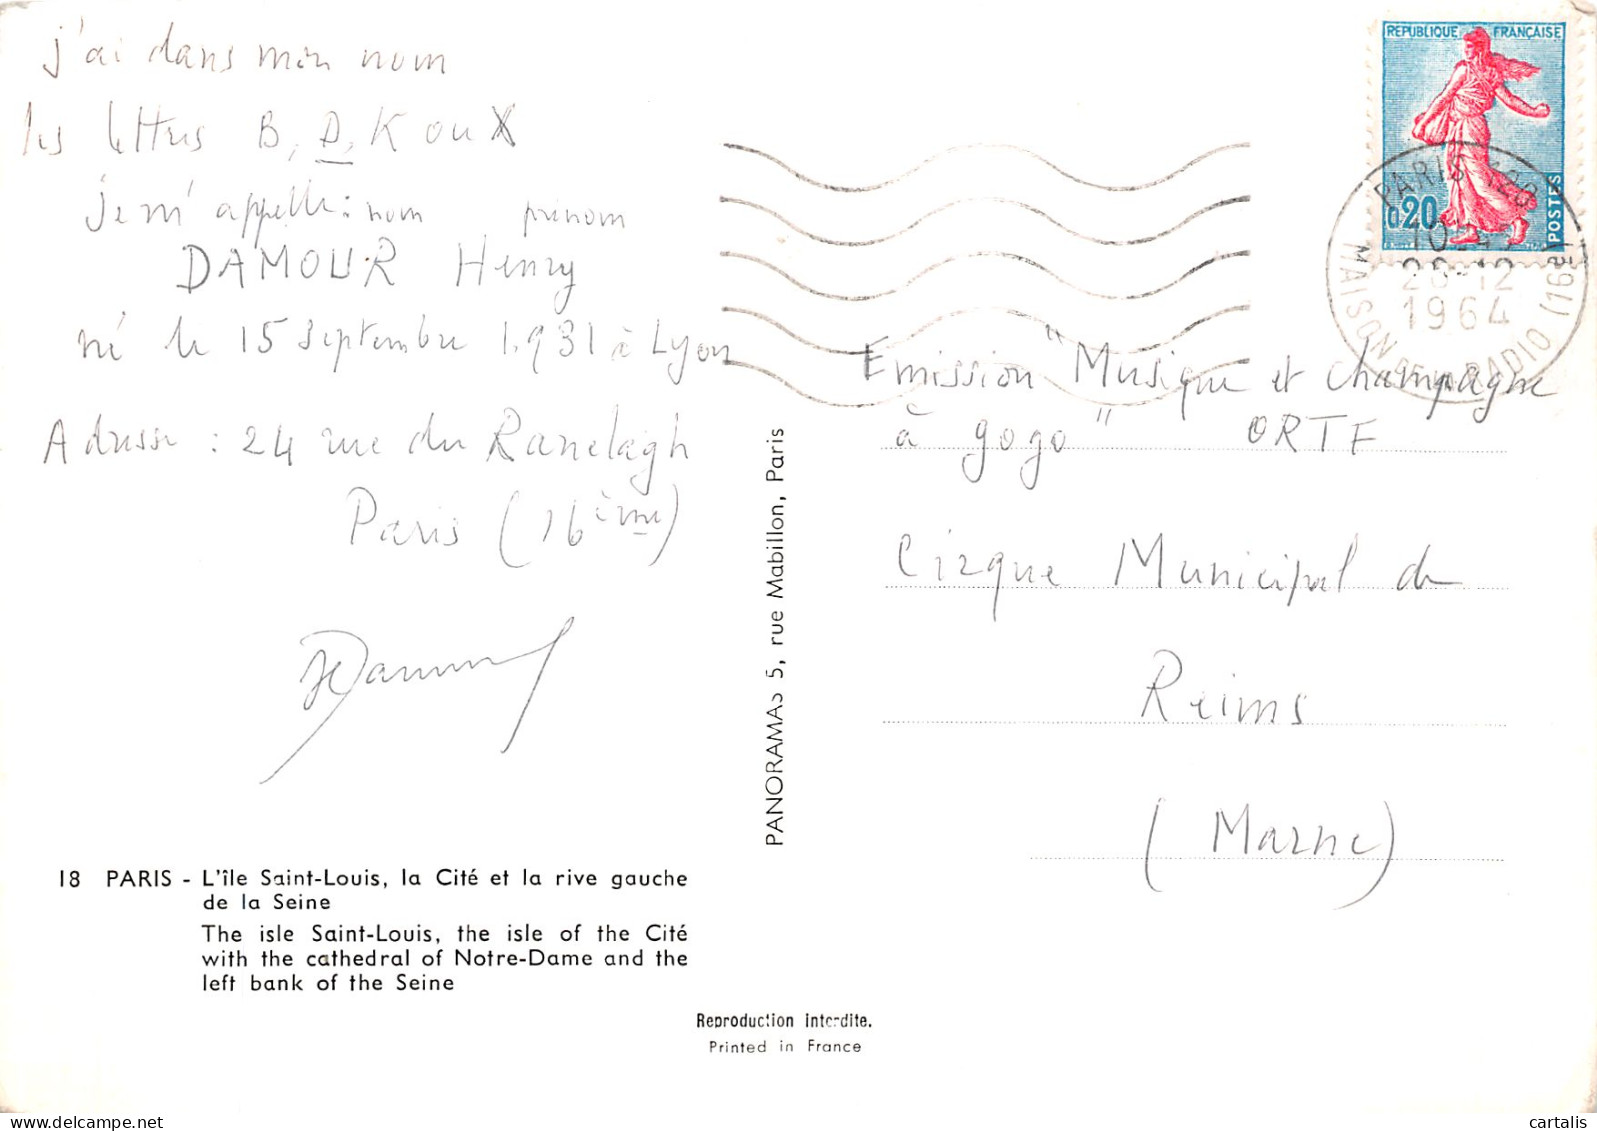 j'ai dans mon nom
les lettres B, D, K ou X
je m'appelle : nom prénom
DAMOUR Henry
né le 15 septembre 1931 à Lyon
Adresse : 24 rue du Ranelagh
Paris (16ème)
18 PARIS - L'île Saint-Louis, la Cité et la rive gauche
de la Seine
The isle Saint-Louis, the isle of the Cité
with the cathedral of Notre-Dame and the
left bank of the Seine
PANORAMAS 5, rue Mabillon, Paris
Reproduction interdite.
Printed in France
REPUBLIQUE FRANÇAISE
0,20
POSTES
PARIS
1964
MAISON DE LA RADIO (16e)
Emission "Musique et champagne
à gogo" ORTF
Cirque Municipal de
Reims
(Marne)
cartalis